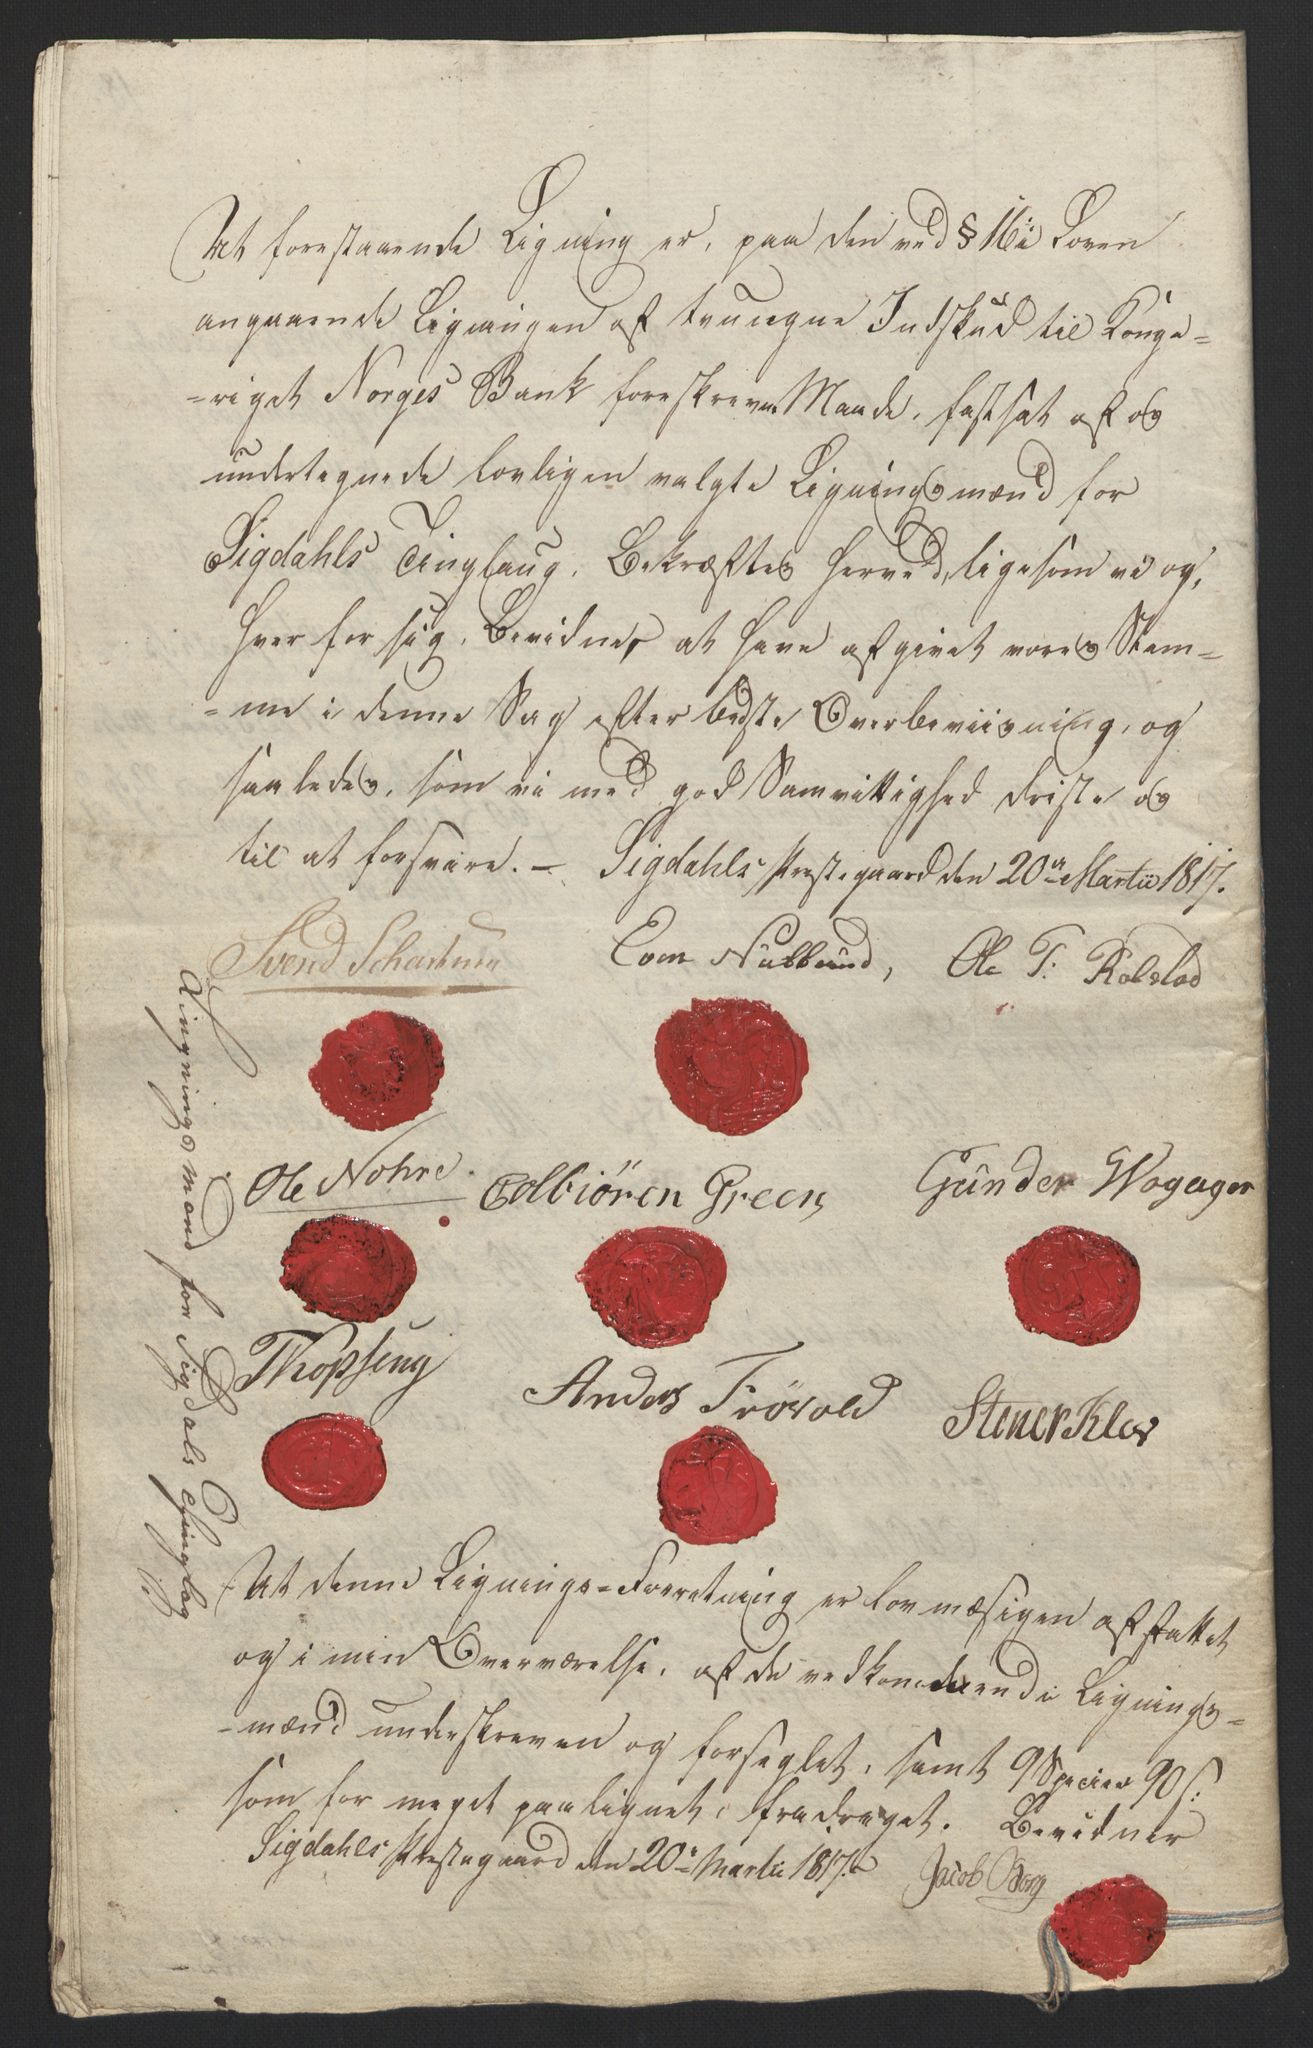 At forestaaende Ligning er, paa den ved § 16 i Loven
angaaende Ligningen af tvungne Indskud til Konge-
-riget Norges Bank foreskrevne Maade, fastsat af os
undertegnede lovligen valgte Ligningsmænd for
Sigdahls Tinglaug, Bekræftes herved, ligesom vi og,
hver for sig, Bevidner at have afgivet vores Stem-
-me i denne Sag efter bedste Overbeviisning, og
saaledes, som vi med god Samvittighed driste os
til at forsvare. — Sigdahls Præstegaard den 20de Martii 1817.
Svend Schartum Tom Nubberud, Ole T: Kolslod
Ole Nohre. Tolbiören Green, Gunder Wogager
Thopseng Anders Frövold Stener Klev
Lingnings mænd for Sigdals Thinglag
At denne Lignings-Forretning er lovmæsigen affattet
og i min Overværelse, af de vedkommende Lignings-
-mænd underskreven og forseglet, samt 9 Species 90 s:
som for meget paalignet, fradraget. Bevidner
Sigdahls Præstegaard den 20de Martii 1817. Jacob Borg